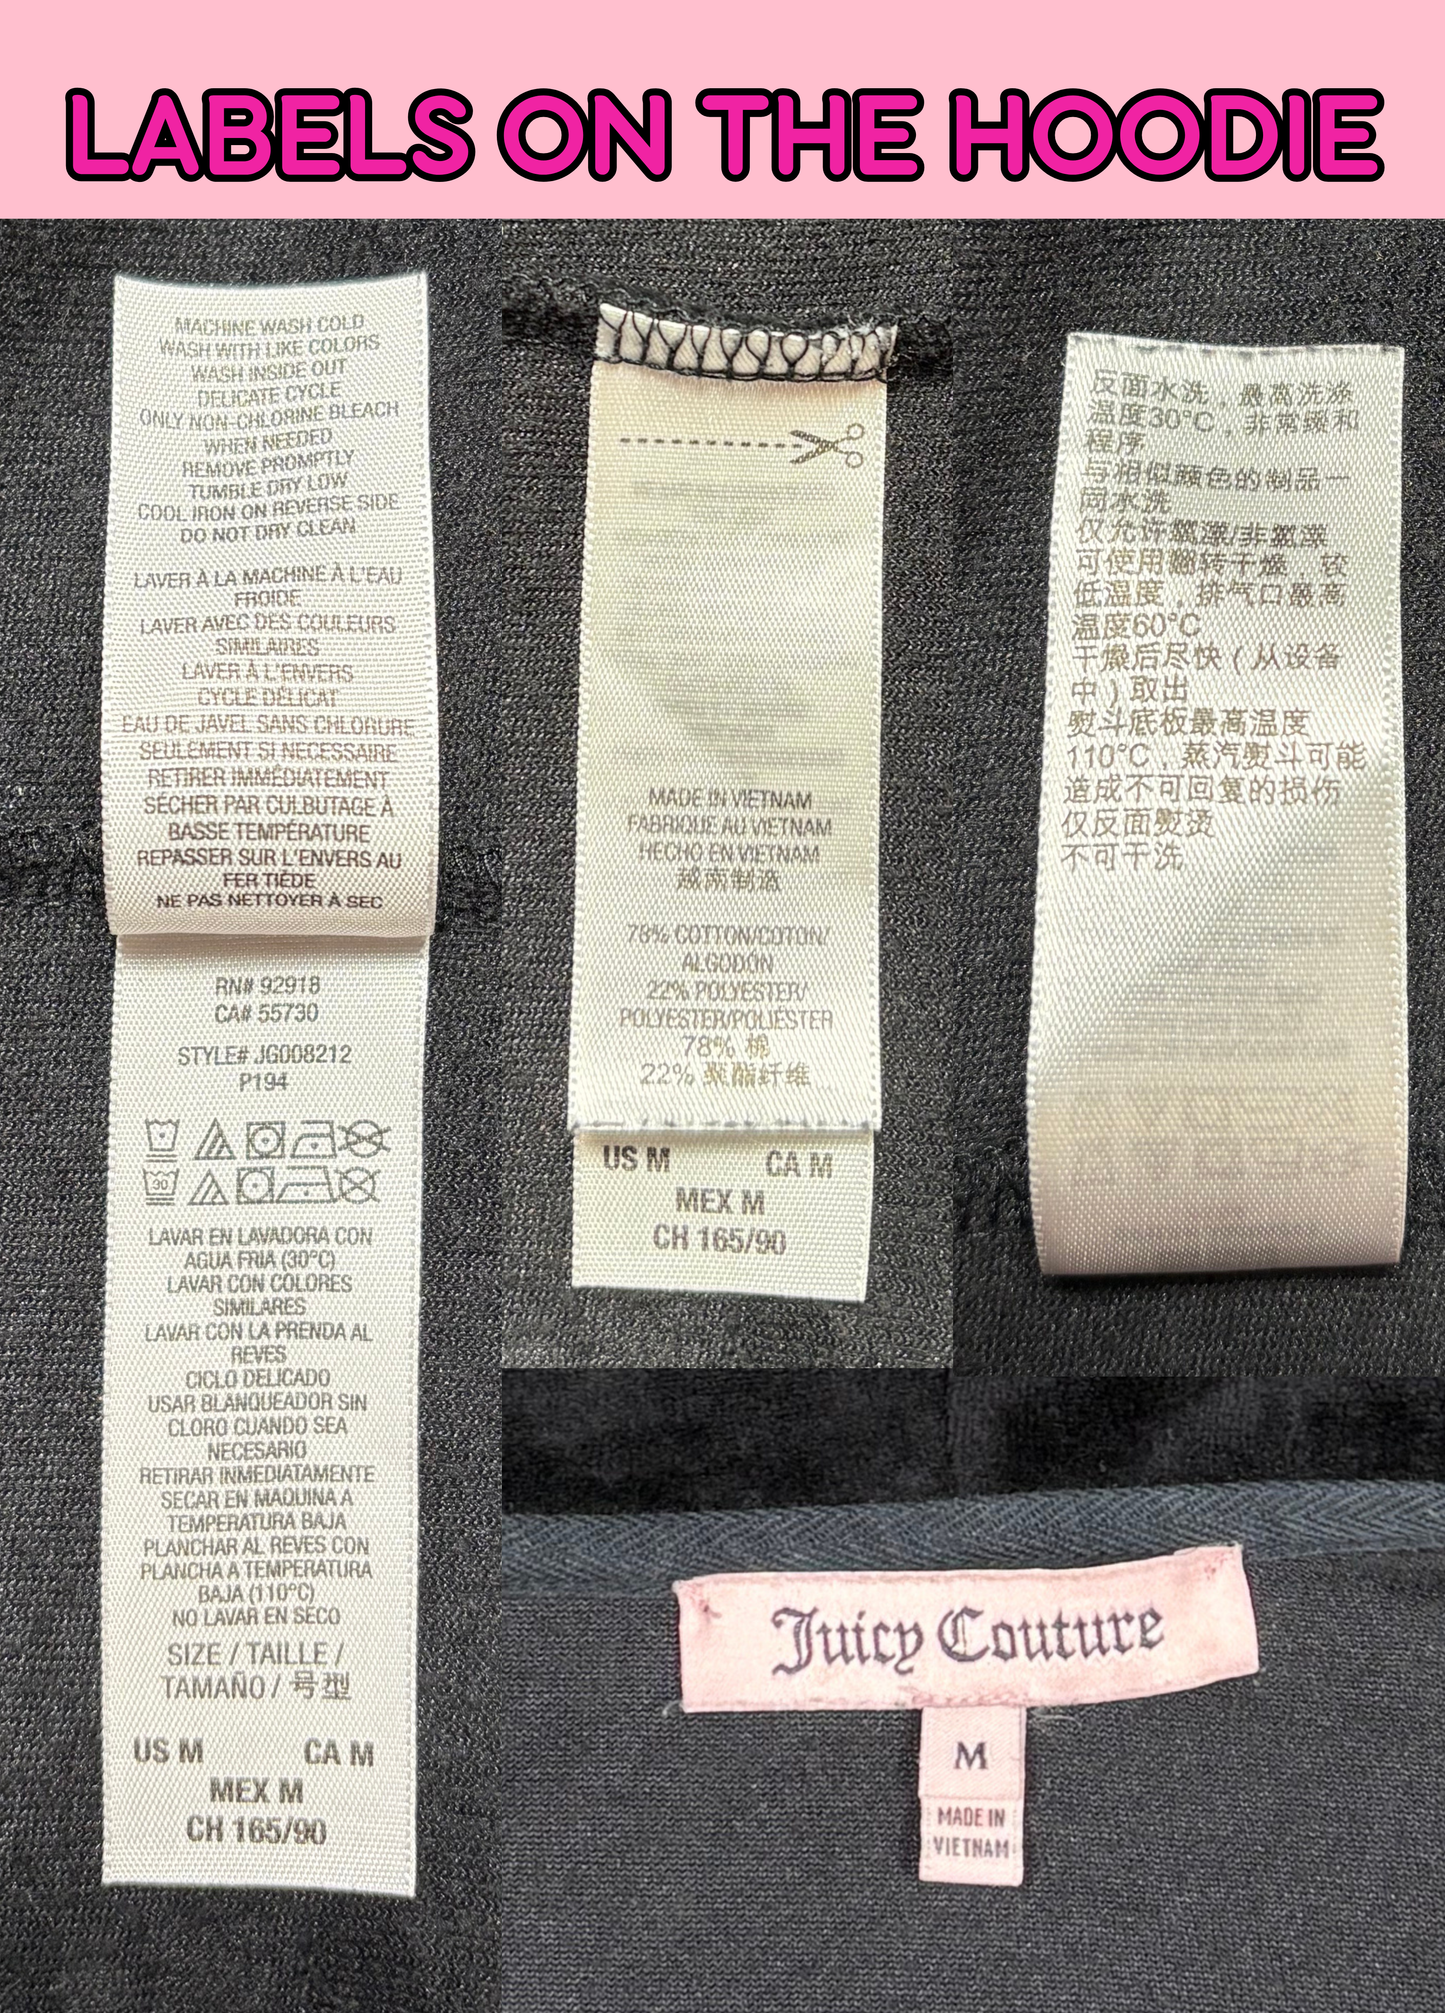 LABELS ON THE HOODIE
MACHINE WASH COLD
WASH WITH LIKE COLORS
WASH INSIDE OUT
DELICATE CYCLE
ONLY NON-CHLORINE BLEACH
WHEN NEEDED
REMOVE PROMPTLY
TUMBLE DRY LOW
COOL IRON ON REVERSE SIDE
DO NOT DRY CLEAN
LAVER À LA MACHINE À L'EAU
FROIDE
LAVER AVEC DES COULEURS
SIMILAIRES
LAVER À L'ENVERS
CYCLE DÉLICAT
EAU DE JAVEL SANS CHLORURE
SEULEMENT SI NECESSAIRE
RETIRER IMMÉDIATEMENT
SÉCHER PAR CULBUTAGE À
BASSE TEMPÉRATURE
REPASSER SUR L'ENVERS AU
FER TIÈDE
NE PAS NETTOYER À SEC
RN# 92918
CA# 55730
STYLE# JG008212
P194
30
LAVAR EN LAVADORA CON
AGUA FRIA (30°C)
LAVAR CON COLORES
SIMILARES
LAVAR CON LA PRENDA AL
REVES
CICLO DELICADO
USAR BLANQUEADOR SIN
CLORO CUANDO SEA
NECESARIO
RETIRAR INMEDIATAMENTE
SECAR EN MAQUINA A
TEMPERATURA BAJA
PLANCHAR AL REVES CON
PLANCHA A TEMPERATURA
BAJA (110°C)
NO LAVAR EN SECO
SIZE / TAILLE /
TAMAÑO / 号型
US M CA M
MEX M
CH 165/90
MADE IN VIETNAM
FABRIQUE AU VIETNAM
HECHO EN VIETNAM
越南制造
78% COTTON/COTON/
ALGODÓN
22% POLYESTER/
POLYESTER/POLIÉSTER
78% 棉
22% 聚酯纤维
US M CA M
MEX M
CH 165/90
反面水洗，最高洗涤
温度30°C，非常缓和
程序
与相似颜色的制品一
同水洗
仅允许氧漂/非氯漂
可使用翻转干燥，较
低温度，排气口最高
温度60°C
干燥后尽快（从设备
中）取出
熨斗底板最高温度
110°C，蒸汽熨斗可能
造成不可回复的损伤
仅反面熨烫
不可干洗
Juicy Couture
M
MADE IN
VIETNAM